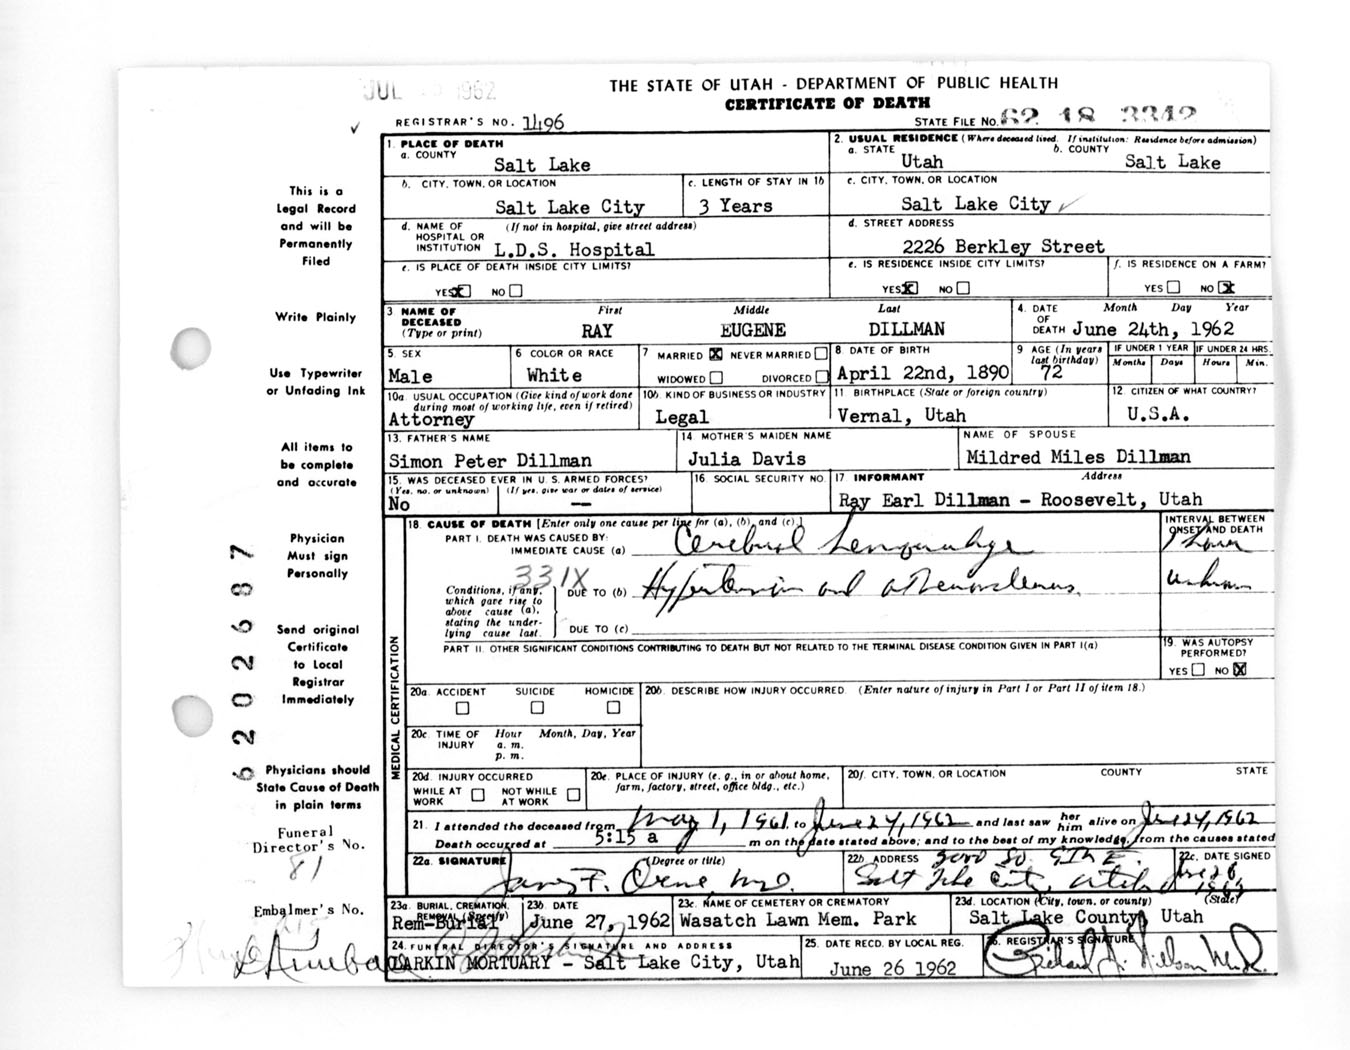 JUL 1962
THE STATE OF UTAH - DEPARTMENT OF PUBLIC HEALTH
CERTIFICATE OF DEATH
REGISTRAR'S NO. 1496 STATE FILE NO. 62 18 3342
This is a
Legal Record
and will be
Permanently
Filed
Write Plainly
Use Typewriter
or Unfading Ink
All items to
be complete
and accurate
Physician
Must sign
Personally
Send original
Certificate
to Local
Registrar
Immediately
Physicians should
State Cause of Death
in plain terms
Funeral
Director's No.
81
Embalmer's No.
6202687
1. PLACE OF DEATH
a. COUNTY
Salt Lake
2. USUAL RESIDENCE (Where deceased lived. If institution: Residence before admission)
a. STATE b. COUNTY
Utah Salt Lake
b. CITY, TOWN, OR LOCATION
Salt Lake City
c. LENGTH OF STAY IN 1b
3 Years
c. CITY, TOWN, OR LOCATION
Salt Lake City
d. NAME OF HOSPITAL OR INSTITUTION (If not in hospital, give street address)
L.D.S. Hospital
d. STREET ADDRESS
2226 Berkley Street
e. IS PLACE OF DEATH INSIDE CITY LIMITS?
YES X NO
e. IS RESIDENCE INSIDE CITY LIMITS?
YES X NO
f. IS RESIDENCE ON A FARM?
YES NO X
3 NAME OF DECEASED (Type or print) First Middle Last
RAY EUGENE DILLMAN
4. DATE OF DEATH Month Day Year
June 24th, 1962
5. SEX
Male
6 COLOR OR RACE
White
7 MARRIED X NEVER MARRIED
WIDOWED DIVORCED
8 DATE OF BIRTH
April 22nd, 1890
9 AGE (In years last birthday)
72
IF UNDER 1 YEAR IF UNDER 24 HRS.
Months Days Hours Min.
10a. USUAL OCCUPATION (Give kind of work done during most of working life, even if retired)
Attorney
10b. KIND OF BUSINESS OR INDUSTRY
Legal
11 BIRTHPLACE (State or foreign country)
Vernal, Utah
12 CITIZEN OF WHAT COUNTRY?
U.S.A.
13. FATHER'S NAME
Simon Peter Dillman
14. MOTHER'S MAIDEN NAME
Julia Davis
NAME OF SPOUSE
Mildred Miles Dillman
15. WAS DECEASED EVER IN U. S. ARMED FORCES?
(Yes, no, or unknown) (If yes, give war or dates of service)
No —
16. SOCIAL SECURITY NO.
17 INFORMANT Address
Ray Earl Dillman - Roosevelt, Utah
MEDICAL CERTIFICATION
18. CAUSE OF DEATH [Enter only one cause per line for (a), (b), and (c).]
INTERVAL BETWEEN ONSET AND DEATH
PART I. DEATH WAS CAUSED BY:
IMMEDIATE CAUSE (a) Cerebral hemorrhage
331X
Conditions, if any, which gave rise to above cause (a), stating the underlying cause last.
DUE TO (b) Hypertension and atherosclerosis unknown
DUE TO (c)
PART II. OTHER SIGNIFICANT CONDITIONS CONTRIBUTING TO DEATH BUT NOT RELATED TO THE TERMINAL DISEASE CONDITION GIVEN IN PART I(a)
19. WAS AUTOPSY PERFORMED?
YES NO X
20a. ACCIDENT SUICIDE HOMICIDE
20b. DESCRIBE HOW INJURY OCCURRED. (Enter nature of injury in Part I or Part II of item 18.)
20c. TIME OF INJURY Hour Month, Day, Year
a. m.
p. m.
20d. INJURY OCCURRED
WHILE AT WORK NOT WHILE AT WORK
20e. PLACE OF INJURY (e. g., in or about home, farm, factory, street, office bldg., etc.)
20f. CITY, TOWN, OR LOCATION COUNTY STATE
21. I attended the deceased from May 1, 1961 to June 24, 1962 and last saw her him alive on June 24, 1962
Death occurred at 5:15 a m on the date stated above; and to the best of my knowledge, from the causes stated
22a. SIGNATURE (Degree or title)
James F. Orme M.D.
22b ADDRESS
Salt Lake City, Utah
22c. DATE SIGNED
23a. BURIAL, CREMATION, REMOVAL (Specify)
Rem-Burial
23b. DATE
June 27, 1962
23c. NAME OF CEMETERY OR CREMATORY
Wasatch Lawn Mem. Park
23d. LOCATION (City, town, or county) (State)
Salt Lake County, Utah
24. FUNERAL DIRECTOR'S SIGNATURE AND ADDRESS
LARKIN MORTUARY - Salt Lake City, Utah
25. DATE RECD. BY LOCAL REG.
June 26 1962
26. REGISTRAR'S SIGNATURE